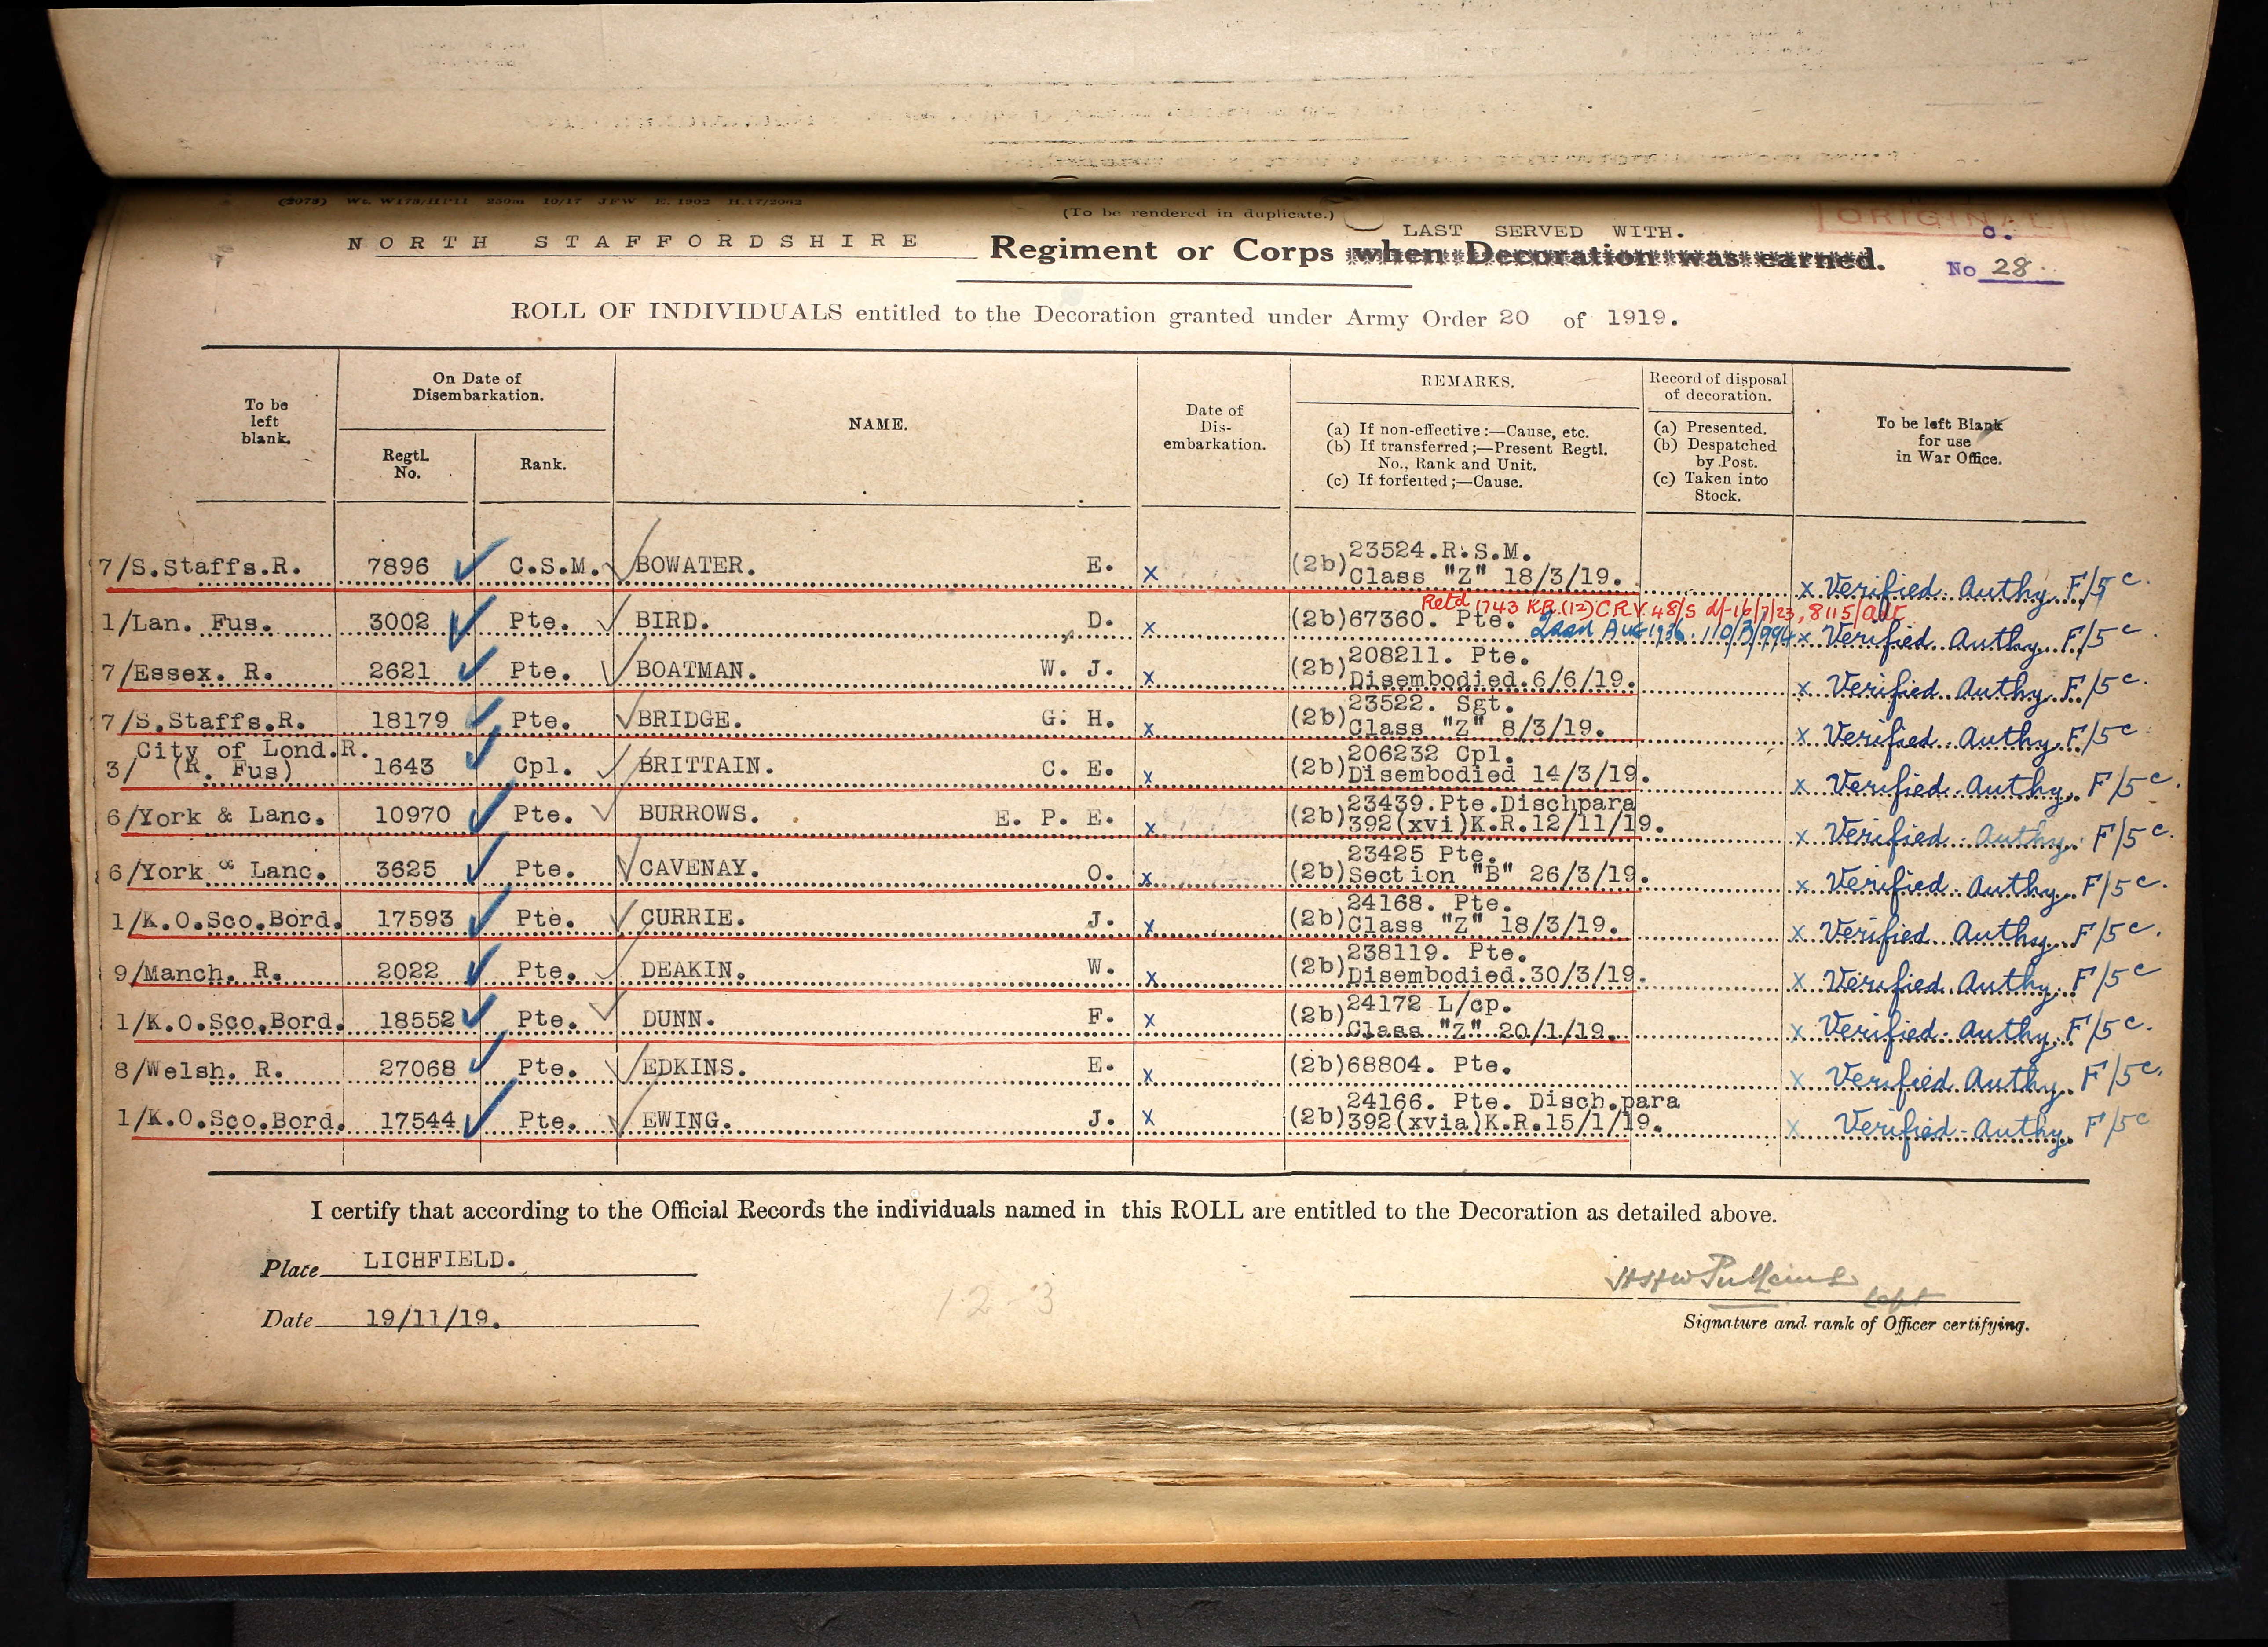 (2073) Wt. W173/HP11 250m 10/17 JFW E. 1902 H.17/2062
(To be rendered in duplicate.)
ORIGINAL
NORTH STAFFORDSHIRE Regiment or Corps when Decoration was earned.
LAST SERVED WITH.
O.
No 28
ROLL OF INDIVIDUALS entitled to the Decoration granted under Army Order 20 of 1919.
To be left blank.
On Date of Disembarkation.
Regtl. No.
Rank.
NAME.
Date of Dis-embarkation.
REMARKS.
(a) If non-effective :—Cause, etc.
(b) If transferred ;—Present Regtl. No., Rank and Unit.
(c) If forfeited ;—Cause.
Record of disposal of decoration.
(a) Presented.
(b) Despatched by Post.
(c) Taken into Stock.
To be left Blank for use in War Office.
7/S.Staffs.R. 7896 C.S.M. BOWATER. E. x (2b) 23524.R.S.M. Class "Z" 18/3/19. x Verified Authy F/5c.
Retd 1743 KR.(12) C.R.V. 48/S d/-16/7/23, 8115/Adt
1/Lan. Fus. 3002 Pte. BIRD. D. x (2b)67360. Pte. x Verified Authy. F/5c
7/Essex. R. 2621 Pte. BOATMAN. W. J. x (2b) 208211. Pte. Disembodied.6/6/19. x Verified Authy F/5c.
7/S.Staffs.R. 18179 Pte. BRIDGE. G. H. x (2b) 23522. Sgt. Class "Z" 8/3/19. x Verified Authy F/5c.
3/ City of Lond.R. (R. Fus) 1643 Cpl. BRITTAIN. C. E. x (2b) 206232 Cpl. Disembodied 14/3/19. x Verified Authy. F/5c.
6/York & Lanc. 10970 Pte. BURROWS. E. P. E. x (2b) 23439.Pte.Dischpara 392(xvi)K.R.12/11/19. x Verified Authy. F/5c.
6/York & Lanc. 3625 Pte. CAVENAY. O. x (2b) 23425 Pte. Section "B" 26/3/19. x Verified Authy. F/5c.
1/K.O.Sco.Bord. 17593 Pte. CURRIE. J. x (2b) 24168. Pte. Class "Z" 18/3/19. x Verified Authy. F/5c.
9/Manch. R. 2022 Pte. DEAKIN. W. x (2b) 238119. Pte. Disembodied.30/3/19. x Verified Authy. F/5c
1/K.O.Sco.Bord. 18552 Pte. DUNN. F. x (2b) 24172 L/cp. Class "Z" 20/1/19. x Verified Authy. F/5c.
8/Welsh. R. 27068 Pte. EDKINS. E. x (2b)68804. Pte. x Verified Authy. F/5c.
1/K.O.Sco.Bord. 17544 Pte. EWING. J. x (2b) 24166. Pte. Disch.para 392(xvia)K.R.15/1/19. x Verified - Authy. F/5c
I certify that according to the Official Records the individuals named in this ROLL are entitled to the Decoration as detailed above.
Place LICHFIELD.
Date 19/11/19.
12-3
Capt
Signature and rank of Officer certifying.